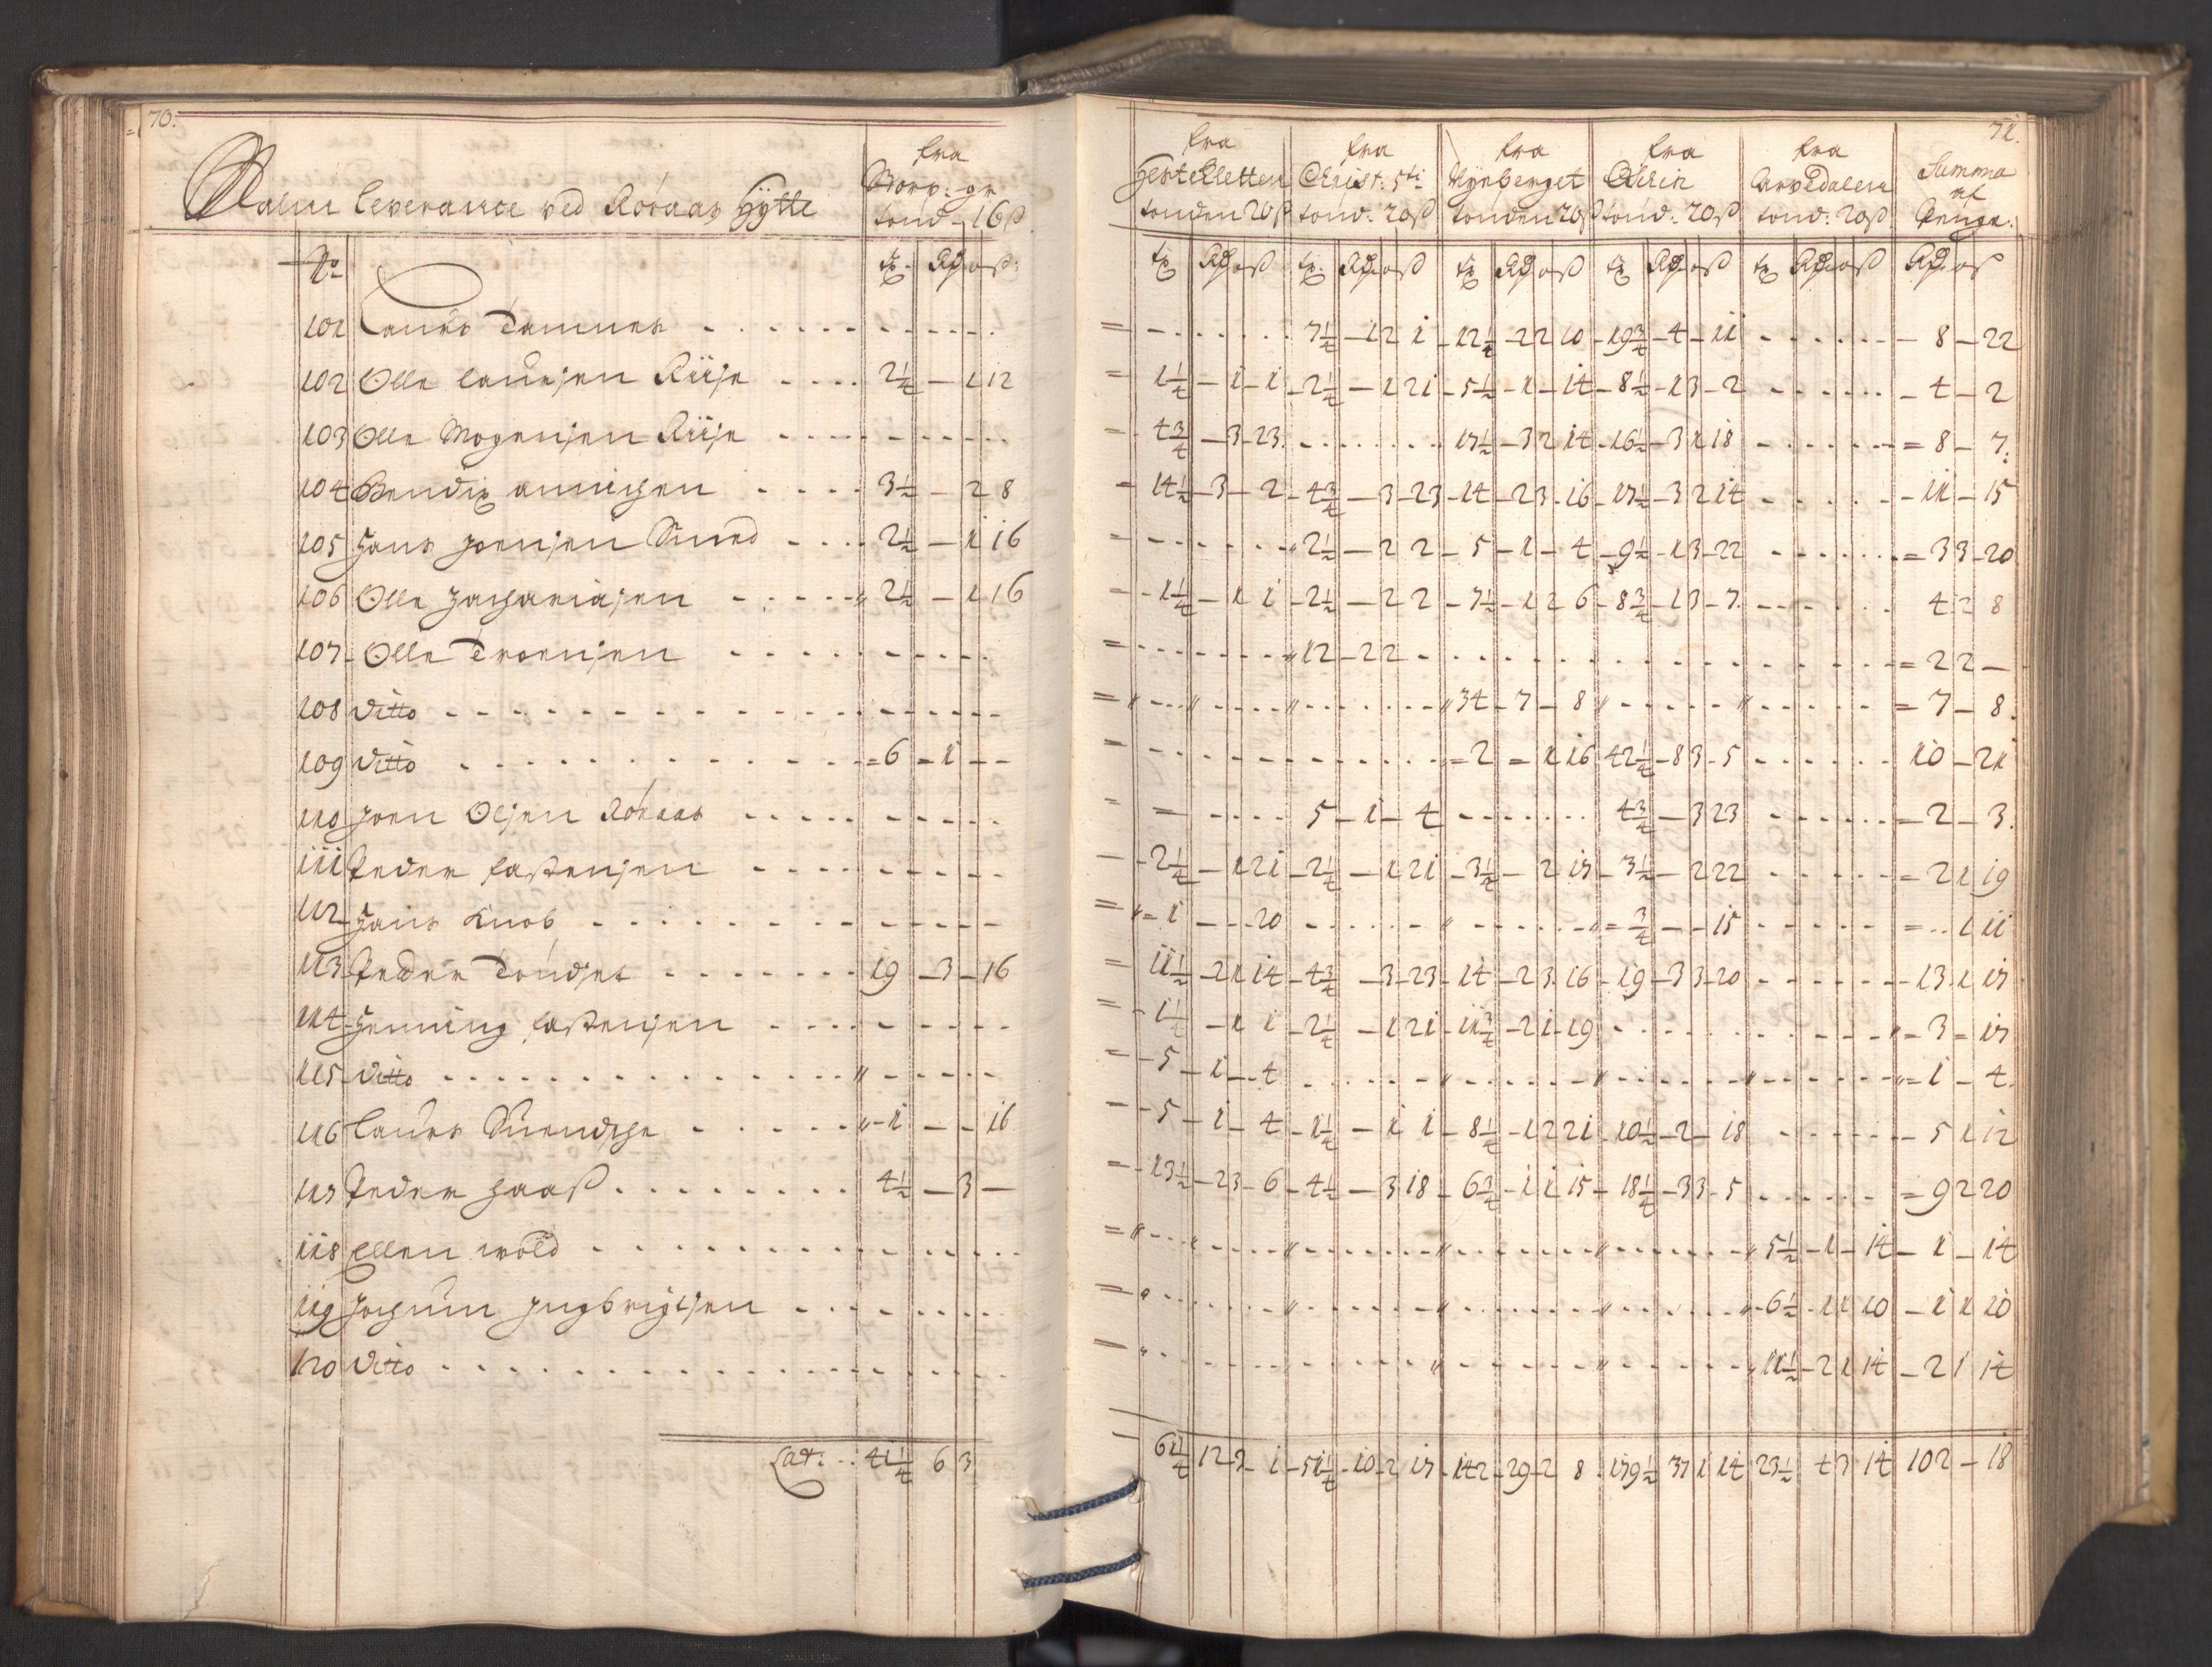 70.
71.
Malm leverance ved Röraas Hÿtte
fra Storv: gr tönd - 16ß
fra Hestekletten tonden 20ß
fra Christ: 5ti tönd: 20ß
fra Nÿeberget tönden 20ß
fra Qvin tönd: 20ß
fra Arvedalen tönd: 20ß
Summa af Penge.
No
101 Laurs Tamnes - - - - 7½ - 1 2 1 - 12½ - 2 2 10 - 19¾ - 4 - 11 - - - - 8 - 22
102 Olle laursen Riise - - - - 2¼ - 1 12 = 1¼ - 1 - 1 - 2¼ - 1 21 - 5½ - 1 - 14 - 8½ - 1 3 - 2 - - - - 4 - 2
103 Olle Mogensen Riise - - - - 4¾ - 3 - 23 - - - - 17½ - 3 2 14 - 16½ - 3 1 18 - - - - = 8 - 7.
104 Bendix - - - - 3½ - 2 8 - 14½ - 3 - 2 - 4¾ - 3 - 23 - 14 - 2 3 - 16 - 17½ - 3 2 14 - - - - 11 - 15
105 Hans Joensen Smed - - - - 2½ - 1 16 = - - - - 2½ - 2 2 - 5 - 1 - 4 - 9½ - 1 3 - 22 - - - - = 3 3 - 20
106 Olle Zachariasen - - - - 2½ - 1 16 = - 1¼ - 1 1 - 2½ - 2 2 - 7½ - 1 2 6 - 8¾ - 1 3 - 7 - - - - 4 2 8
107 Olle Troensen - - - - = - - - - 12 - 2 2 - - - - = 2 2 -
108 ditto - - - - = - - - - 34 - 7 - 8 - - - - = 7 - 8.
109 ditto - - - - = 6 = 1 - - = - - - - = 2 = 1 16 42½ - 8 3 - 5 - - - - 10 - 21
110 Joen Olsen Röraas - - - - 5 - 1 - 4 - - - - 4¾ - 3 23 - - - - = 2 - 3.
111 Peder fastensen - - - - 2¼ - 1 21 - 2¼ - 1 21 - 3½ - 2 17 - 3½ - 2 22 - - - - = 2 1 19
112 Hans Knob - - - - = 1 - - 20 - - - - = ¾ - - 15 - - - - = - - 1 11
113 Peder Tönset - - - - 19 - 3 - 16 = 11½ - 2 1 14 - 4¾ - 3 - 23 - 14 - 2 3 16 - 19 - 3 3 - 20 - - - - 13 1 17
114 Henning fastensen - - - - = - 1¼ - 1 1 - 2¼ - 1 21 - 11¾ - 2 1 - 19 - - - - = 3 = 17
115 ditto - - - - = - 5 - 1 - 4 - - - - = 1 - 4.
116 Laurs Svendske - - - - 1 - - 16 - - 5 - 1 - 4 - 1¼ - 1 1 - 8½ - 1 2 21 - 10½ - 2 - 18 - - - - 5 1 12
117 Peder Haaß - - - - 4½ - 3 - = - 13½ - 2 3 - 6 - 4½ - 3 18 - 6¾ - 1 1 15 - 18¼ - 3 3 - 5 - - - - = 9 2 20
118 Ellen wold - - - - 5½ - 1 - 14 - 1 - 14
119 Jochum Jngbrigtsen - - - - 6½ - 1 1 10 - 1 1 10
120 ditto - - - - 11½ - 2 1 14 - 2 1 14
Lat: - - 41¼ 6 3 - 61¼ 12 - 3 - 1 - 51¼ - 10 - 2 17 - 142 - 29 - 2 8 - 179½ 37 1 14 23½ 4 3 14 102 - 18